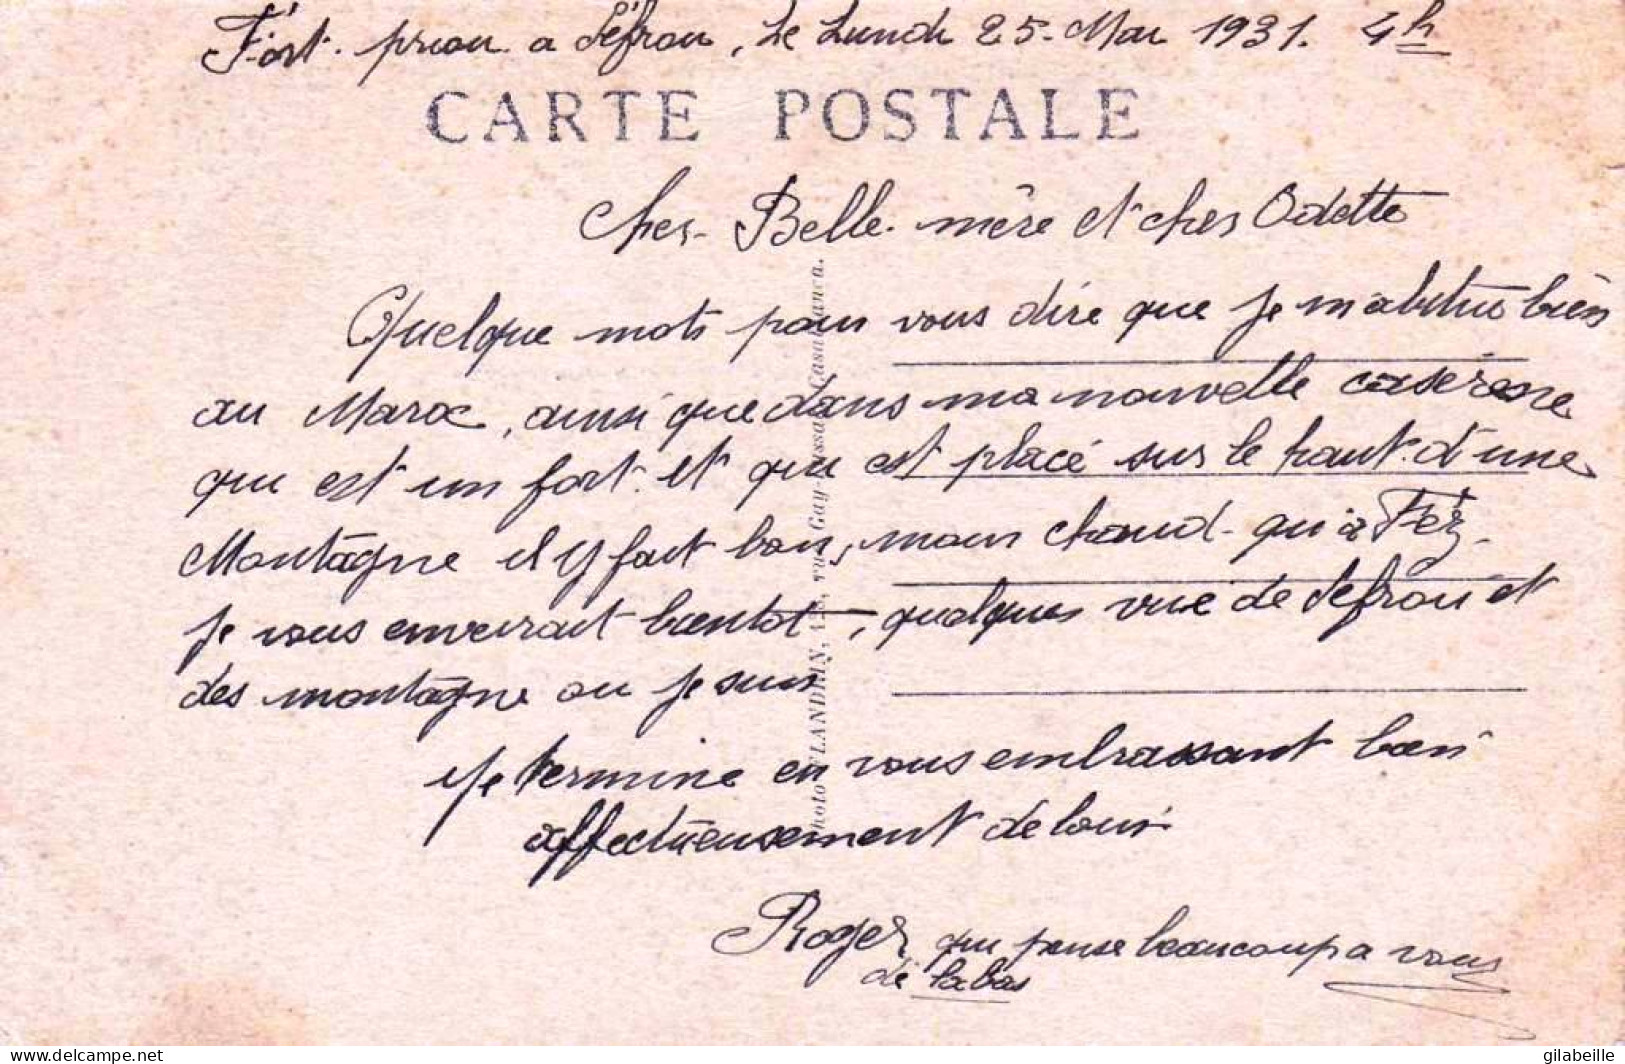 Fort. priou a Séfrou, Le Lundi 25. Mai 1931. 4h
CARTE POSTALE
Cher Belle. mère et cher Odette
Quelque mots pour vous dire que je m'abitue bien
au Maroc, ainsi que dans ma nouvelle caserne
qui est un fort. et qui est placé sur le haut. d'une
Montagne il y fait bon, moin chaud qu'à Fez.
je vous enverrait bientot, quelques vue de Sefrou et
des montagne ou je suis
Je termine en vous embrassant bien
affectueusement de loin
Roger qui pense beaucoup a vous
de labas
Photo FLANDRIN, rue Gay-Lussac Casablanca.
www.delcampe.net
gilabeille